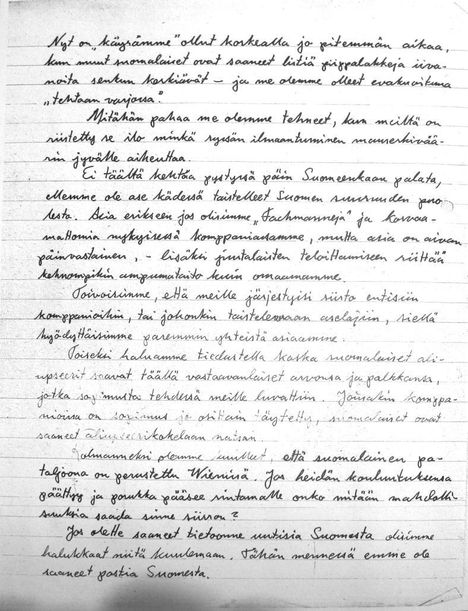 Nyt on "käyrämme" ollut korkealla jo pitemmän aikaa,
kun muut suomalaiset ovat saaneet listiä piippalakkeja iiva-
noita senkun kerkiävät – ja me olemme olleet evakuoituna
"tehtaan varjossa".
Mitähän pahaa me olemme tehneet, kun meiltä on
riistetty se ilo minkä ryssän ilmaantuminen mauserkivää-
rin jyvälle aiheuttaa.
Ei täältä kehtaa pystyssä päin Suomeenkaan palata,
ellemme ole ase kädessä taistelleet Suomen suuruuden puo-
lesta. Asia erikseen jos olisimme "Fachmanneja" ja korvaa-
mattomia nykyisessä komppaniassamme, mutta asia on aivan
päinvastainen, – lisäksi juutalaisten teloittamiseen riittää
kehnompikin ampumataito kuin omaamamme.
Toivoisimme, että meille järjestyisi siirto entisiin
komppanioihin, tai johonkin taistelevaan aselajiin, siellä
hyödyttäisimme paremmin yhteistä asiaamme.
Toiseksi haluamme tiedustella koska suomalaiset ali-
upseerit saavat täällä vastaavanlaiset arvonsa ja palkkansa,
jotka sopimusta tehdessä meille luvattiin. Joissakin komppa-
nioissa on sopimus jo osittain täytetty, suomalaiset ovat
saaneet aliupseerikokelaan natsan.
Kolmanneksi olemme kuulleet, että suomalainen pa-
taljoona on perustettu Wienissä. Jos heidän koulutuksensa
päättyy ja porukka pääsee rintamalle onko mitään mahdolli-
suuksia saada sinne siirron?
Jos olette saaneet tietoonne uutisia Suomesta olisimme
halukkaat niitä kuulemaan. Tähän mennessä emme ole
saaneet postia Suomesta.